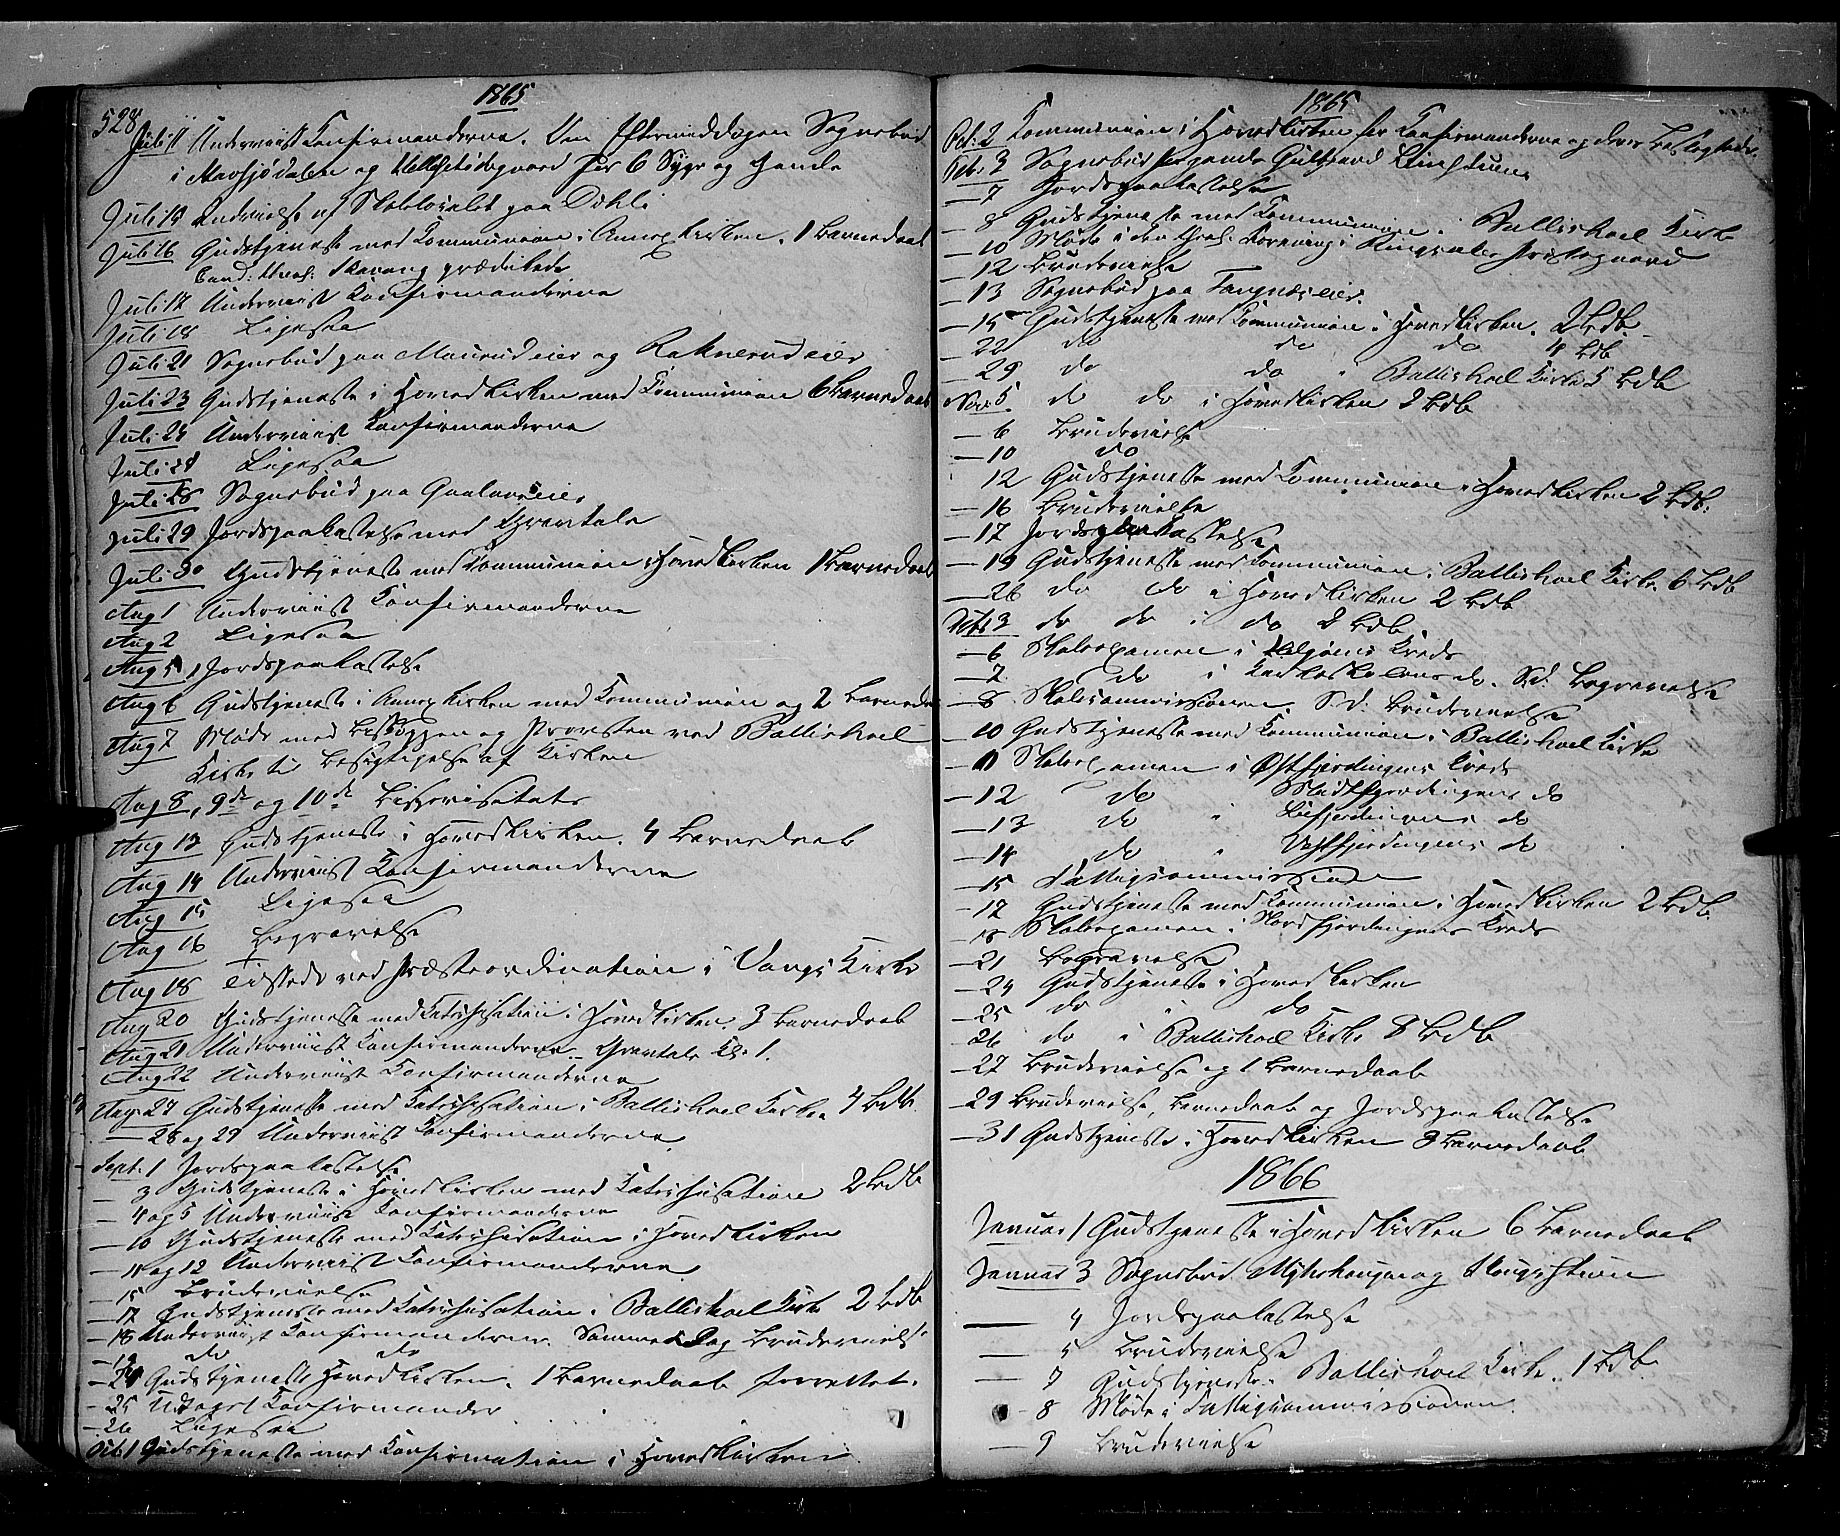 528
1865
Juli 11 Underviist Konfirmanderne. Om Eftermiddagen Sognebud
i Mausjødalen og 6 Syge og
Juli 14 Indvielse af Skolelocalet paa Døhli
Juli 16 Gudstjeneste med Kommunion i Annexkirken. 1 Barnedaab
Cand: theol: Skavang prædikede
Juli 17 Underviist Konfirmanderne
Juli 18 Ligesaa
Juli 21 Sognebud paa Maurudeier og Raknerudeier
Juli 23 Gudstjeneste i Hovedkirken med Kommunion 6 Barnedaab
Juli 24 Underviist Konfirmanderne
Juli 2 Ligesaa
Juli 28 Sognebud paa Gaalaaseier
Juli 29 Jordspaakastelse med Gravtale
Juli 30 Gudstjeneste med Kommunion i Hovedkirken 1 Barnedaab
Aug 1 Underviist Konfirmanderne
Aug 2 Ligesaa
Aug 5 Jordspaakastelse
Aug 6 Gudstjeneste i Annexkirken med Kommunion og 2 Barnedaab
Aug 7 Møde med Biskoppen og Provsten ved Ballishoel
Kirke til Besigtigelse af Kirken
Aug 8, 9de og 10de Bispevisitats
Aug 13 Gudstjeneste i Hovedkirken. 4 Barnedaab
Aug 14 Underviist Konfirmanderne
Aug 15 Ligesaa
Aug 16 Begravelse
Aug 18 Tilstede ved Præsteordination i Vangs Kirke
Aug 20 Gudstjeneste med Katechisation i Hovedkirken. 3 Barnedaab
Aug 21 Underviist Konfirmanderne – Gravtale Kl. 1.
Aug 22 Underviist Konfirmanderne
Aug: 27 Gudstjeneste med Katechisation i Ballishoel Kirke 4 Bdb.
— 28 og 29 Underviist Konfirmanderne
Sept. 1 Jordspaakastelse
— 3 Gudstjeneste i Hovedkirken med Katechisation 2 Bdb
— 4 og 5 Underviist Konfirmanderne
— 10 Gudstjeneste med Katechisation i Hovedkirken
— 11 og 12 Underviist Konfirmanderne
— 15 Brudevielse
— 17 Gudstjeneste med Katechisation i Ballishoel Kirke 2 Bdb
— 18 Underviist Konfirmanderne. Samme Dag Brudevielse
— 19 do do
— 24 Gudstjeneste Hovedkirken. 1 Barnedaab forrettet.
— 25 Udtaget Konfirmander
— 26 Ligesaa
Octb 1 Gudstjeneste med Konfirmation i Hovedkirken
1865
Oct: 2 Kommunion i Hovedkirken for Konfirmanderne og deres Beslægtede.
Octb: 3 Sognebud Gulbrand
— 7 Jordspaakastelse
— 8 Gudstjeneste med Kommunion i Ballishoel Kirke
— 10 Møde i den theol. Forening i Ringsaker Prestegaard
— 12 Brudevielse
— 13 Sognebud paa Tangnæseier.
— 15 Gudstjeneste med Kommunion i Hovedkirken. 2 Bdb
— 22 do do do 4 Bdb
— 29 do do i Ballishoel Kirke 5 Bdb
Nov: 5 do do i Hovedkirken 2 Bdb
— 6 Brudevielse
— 10 do
12 Gudstjeneste med Kommunion i Hovedkirken 2 Bdb.
— 16 Brudevielse
— 17 Jordspaakastelse
— 19 Gudstjeneste med Kommunion i Ballishoel Kirke 6 Bdb
— 26 do do i Hovedkirken 2 Bdb
Decbr 3 do do i do 2 Bdb
— 6 Skoleexamen i Kreds
— 7 do i Kirkeskolens do. S.d. Begravelse
— 8 Skolecommissionen. S.d. Brudevielse
— 10 Gudstjeneste med Kommunion i Ballishoel Kirke
— 11 Skoleexamen i Østfjerdingens Kreds
— 12 do Midtfjerdingens do
— 13 do i do
— 14 do i Vestfjerdingens do
— 15 Fattigcommission
— 17 Gudstjeneste med Kommunion i Hovedkirken 2 Bdb
— 18 Skoleexamen i Nordfjerdingens Kreds
— 21 Begravelse
— 24 Gudstjeneste i Hovedkirken
— 25 do i do
— 26 do i Ballishoel Kirke 8 Bdb
— 27 Brudevielse og 1 Barnedaab
— 29 Brudevielse, Barnedaab og Jordspaakastelse
— 31 Gudstjeneste i Hovedkirken 3 Barnedaab
1866
Januar 1 Gudstjeneste i Hovedkirken 6 Barnedaab
Januar 3 Sognebud og
— 4 Jordspaakastelse
— 5 Brudevielse
— 7 Gudstjeneste i Ballishoel Kirke. 1 Bdb.
— 8 Møde i Fattigcommissionen.
— 9 Brudevielse